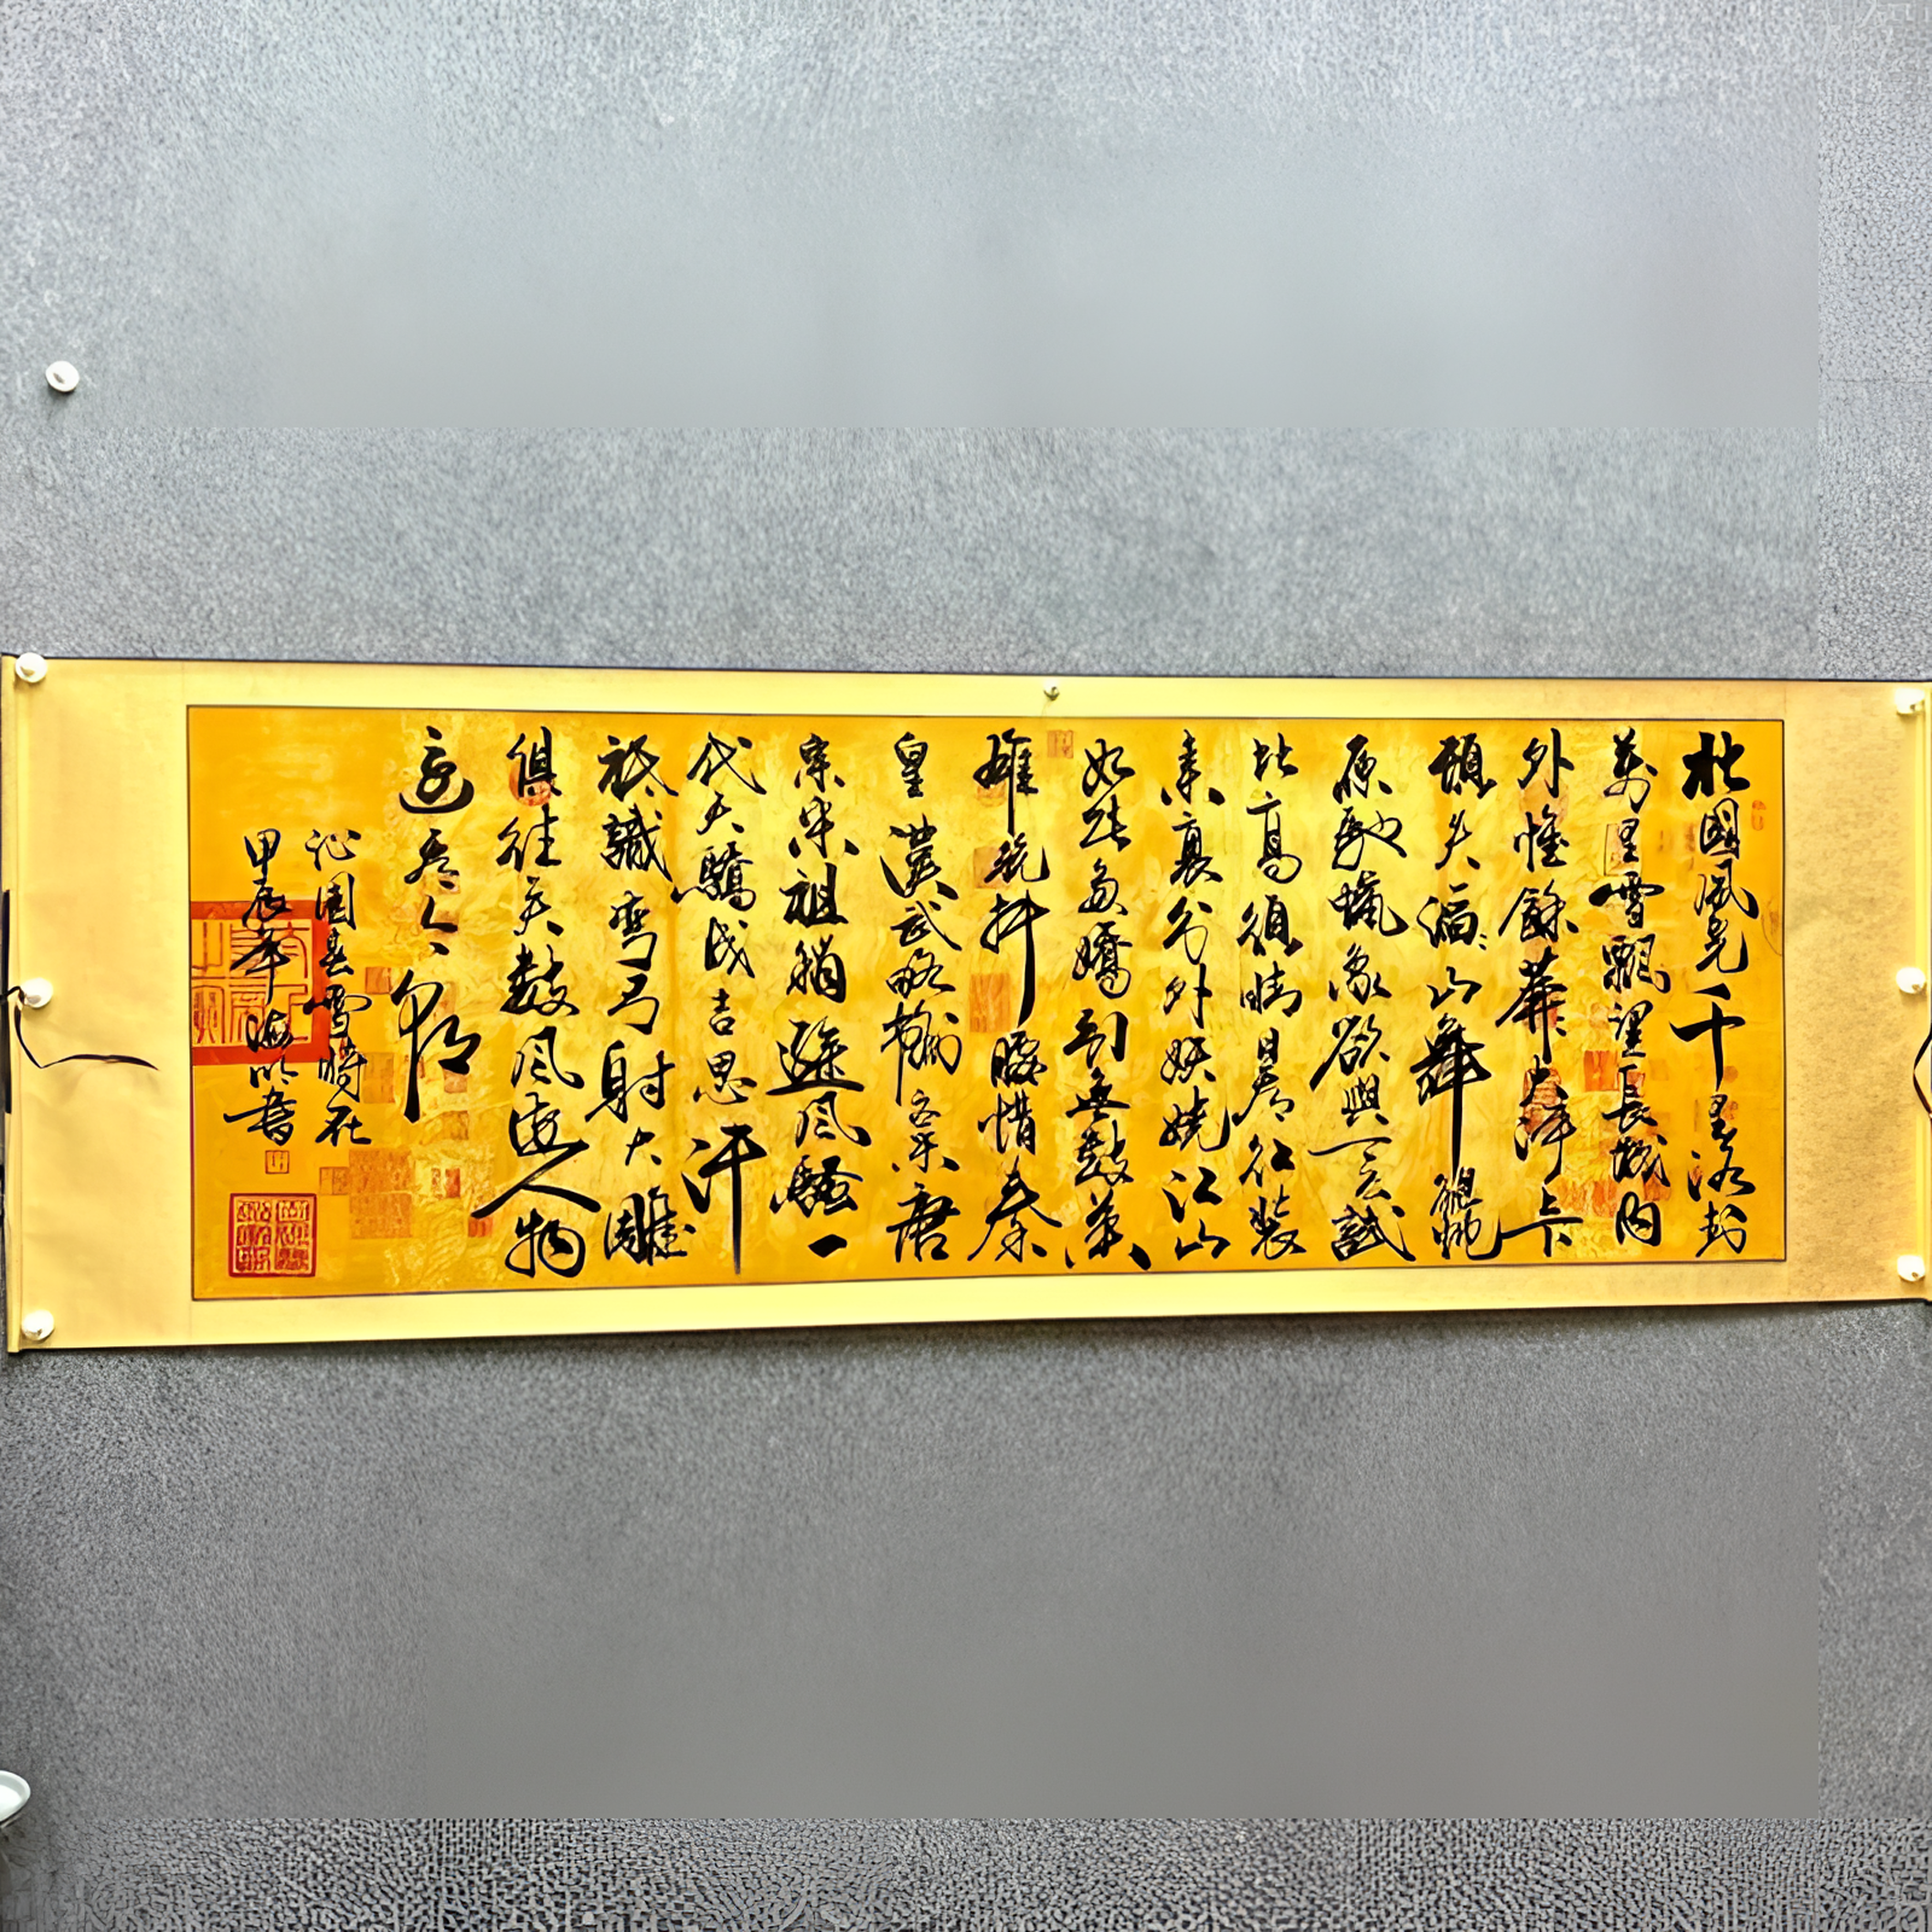 北國風光千里冰封
萬里雪飄望長城内
外惟餘莽莽大河上下
頓失滔滔山舞銀蛇
原馳蠟象欲與天公試
比高須晴日看紅裝
素裹分外妖嬈江山
如此多嬌引無數英
雄競折腰惜秦
皇漢武略輸文采唐
宗宋祖稍遜風騷一
代天驕成吉思汗
祇識彎弓射大雕
俱往矣數風流人物
還看今朝
沁園春雪時在
甲辰年海明書